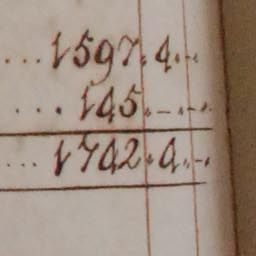 .... 1597. 4. -
.... 145. - . - .
.... 1742. 4. -